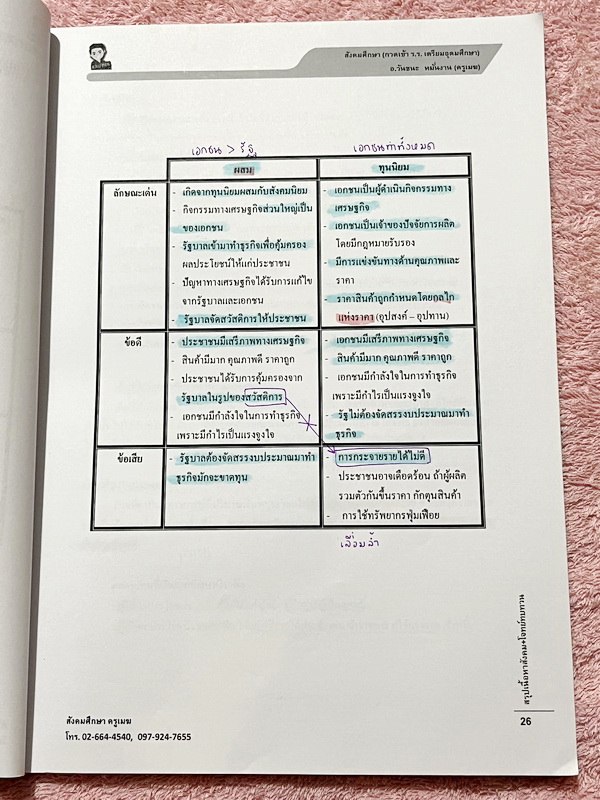 สังคมศึกษา (กวดเข้า ร.ร. เตรียมอุดมศึกษา)
อ.วันชนะ หมั่นงาน (ครูเมฆ)
เอกชน > รัฐ
เอกชนทำทั้งหมด
ผสม
ทุนนิยม
ลักษณะเด่น
- เกิดจากทุนนิยมผสมกับสังคมนิยม
- กิจกรรมทางเศรษฐกิจส่วนใหญ่เป็น
ของเอกชน
- รัฐบาลเข้ามาทำธุรกิจเพื่อคุ้มครอง
ผลประโยชน์ให้แก่ประชาชน
- ปัญหาทางเศรษฐกิจได้รับการแก้ไข
จากรัฐบาลและเอกชน
- รัฐบาลจัดสวัสดิการให้ประชาชน
- เอกชนเป็นผู้ดำเนินกิจกรรมทาง
เศรษฐกิจ
- เอกชนเป็นเจ้าของปัจจัยการผลิต
โดยมีกฎหมายรับรอง
- มีการแข่งขันทางด้านคุณภาพและ
ราคา
- ราคาสินค้าถูกกำหนดโดยกลไก
แห่งราคา (อุปสงค์ – อุปทาน)
ข้อดี
- ประชาชนมีเสรีภาพทางเศรษฐกิจ
- สินค้ามีมาก คุณภาพดี ราคาถูก
- ประชาชนได้รับการคุ้มครองจาก
รัฐบาลในรูปของสวัสดิการ
- เอกชนมีกำลังใจในการทำธุรกิจ
เพราะมีกำไรเป็นแรงจูงใจ
- เอกชนมีเสรีภาพทางเศรษฐกิจ
- สินค้ามีมาก คุณภาพดี ราคาถูก
- เอกชนมีกำลังใจในการทำธุรกิจ
เพราะมีกำไรเป็นแรงจูงใจ
- รัฐไม่ต้องจัดสรรงบประมาณมาทำ
ธุรกิจ
ข้อเสีย
- รัฐบาลต้องจัดสรรงบประมาณมาทำ
ธุรกิจมักจะขาดทุน
- การกระจายรายได้ไม่ดี
- ประชาชนอาจเดือดร้อน ถ้าผู้ผลิต
รวมตัวกันขึ้นราคา กักตุนสินค้า
- การใช้ทรัพยากรฟุ่มเฟือย
เหลื่อมล้ำ
สรุปเนื้อหาสังคม+โจทย์ทบทวน
26
สังคมศึกษา ครูเมฆ
โทร. 02-664-4540, 097-924-7655